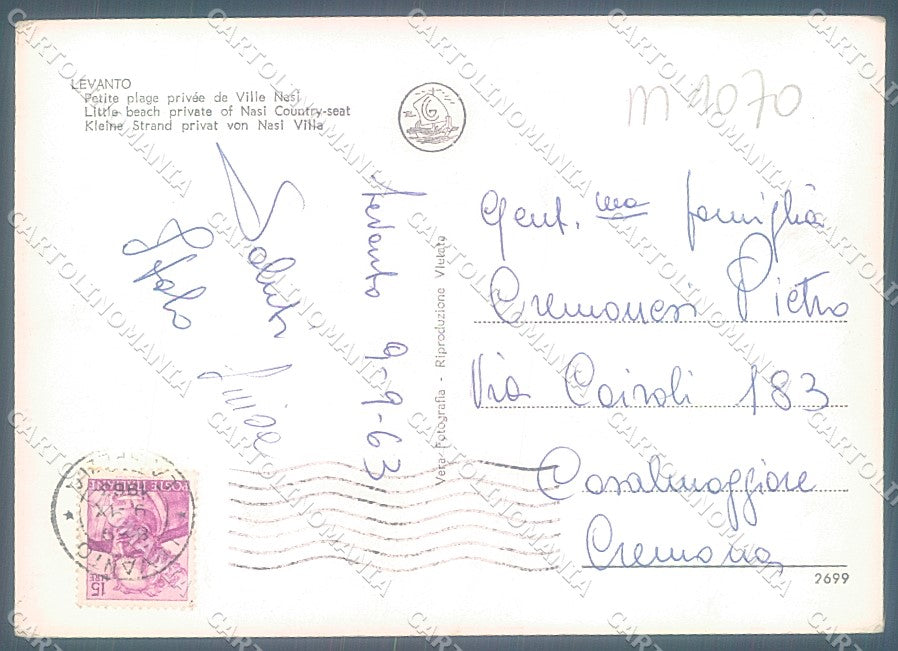 LEVANTO
Petite plage privée de Ville Nasi
Little beach private of Nasi Country-seat
Kleine Strand privat von Nasi Villa
m 1070
Levanto 9-9-63
Saluti
Italo
Vera Fotografia - Riproduzione Vietata
Gent.ma famiglia
Cremonesi Pietro
Via Cairoli 183
Casalmaggiore
Cremona
2699
15
LIRE
CARTOLINOMANIA